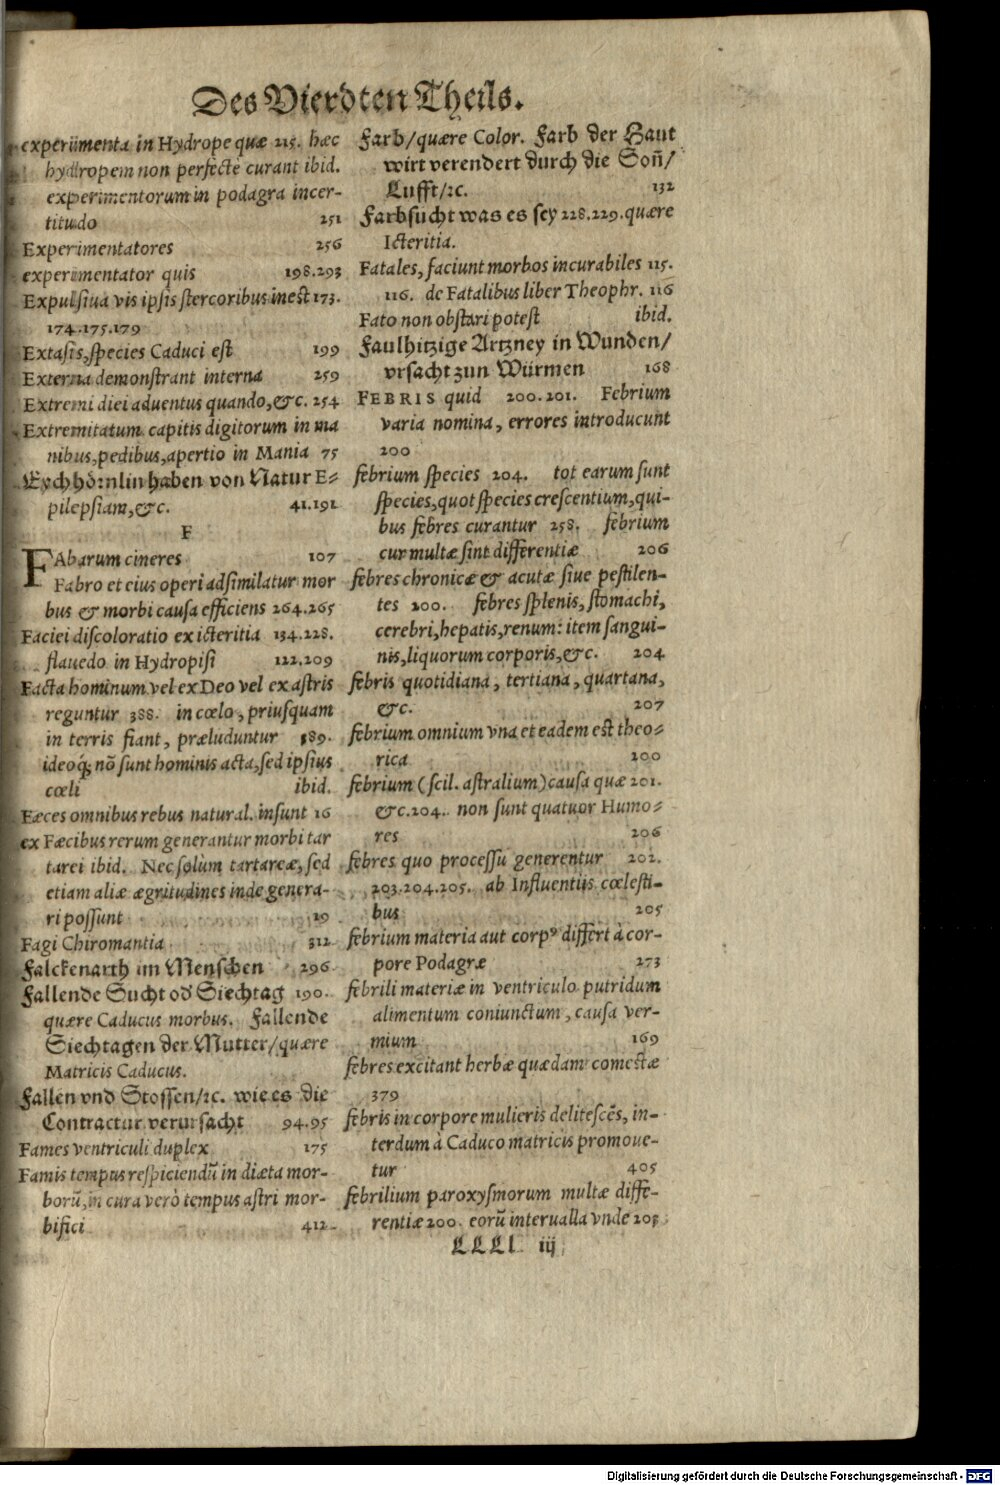 Des Vierdten Theils.
experimenta in Hydrope quæ 215. hæc
hydropem non perfecte curant ibid.
experimentorum in podagra incer-
titudo 251
Experimentatores 256
experimentator quis 198.293
Expulsiua vis ipsis stercoribus inest 173.
174.175.179
Extasis, species Caduci est 199
Externa demonstrant interna 259
Extremi diei aduentus quando, &c. 254
Extremitatum capitis digitorum in ma
nibus, pedibus, apertio in Mania 75
Eychhörnlin haben von Natur E-
pilepsiam, &c. 41.191
F
FAbarum cineres 107
Fabro et eius operi adsimilatur mor
bus & morbi causa efficiens 264.265
Faciei discoloratio ex icteritia 134.228.
flauedo in Hydropisi 122.209
Facta hominum vel ex Deo vel ex astris
reguntur 388. in cœlo, priusquam
in terris fiant, præluduntur 389.
ideoq́; nõ sunt hominis acta, sed ipsius
cœli ibid.
Fæces omnibus rebus natural. insunt 16
ex Fæcibus rerum generantur morbi tar
tarei ibid. Nec solùm tartareæ, sed
etiam aliæ ægritudines inde genera-
ri possunt 19
Fagi Chiromantia 312
Falckenarth im Menschen 296
Fallende Sucht od Siechtag 190.
quære Caducus morbus. Fallende
Siechtagen der Mutter/ quære
Matricis Caducus.
Fallen vnd Stossen/ ꝛc. wie es die
Contractur verursacht 94.95
Fames ventriculi duplex 175
Famis tempus respiciendũ in diæta mor-
borũ, in cura verò tempus astri mor-
bifici 412
Farb/ quære Color. Farb der Haut
wirt verendert durch die Soñ/
Lufft/ ꝛc. 132
Farbsucht was es sey 228.229. quære
Icteritia.
Fatales, faciunt morbos incurabiles 115.
116. de Fatalibus liber Theophr. 116
Fato non obstari potest ibid.
Faulhitzige Artzney in Wunden/
vrsacht zun Würmen 168
FEBRIS quid 200.201. Febrium
varia nomina, errores introducunt
200
febrium species 204. tot earum sunt
species, quot species crescentium, qui-
bus febres curantur 258. febrium
cur multæ sint differentiæ 206
febres chronicæ & acutæ siue pestilen-
tes 200. febres splenis, stomachi,
cerebri, hepatis, renum: item sangui-
nis, liquorum corporis, &c. 204
febris quotidiana, tertiana, quartana,
&c. 207
febrium omnium vna et eadem est theo-
rica 200
febrium (scil. astralium) causa quæ 201.
&c. 204. non sunt quatuor Humo-
res 206
febres quo processu generentur 202.
203.204.205. ab Influentiis cœlesti-
bus 205
febrium materia aut corpꝰ differt à cor-
pore Podagræ 273
febrili materiæ in ventriculo putridum
alimentum coniunctum, causa ver-
mium 169
febres excitant herbæ quædam comestæ
379
febris in corpore mulieris delitescẽs, in-
terdum à Caduco matricis promoue-
tur 405
febrilium paroxysmorum multæ diffe-
rentiæ 200. eorũ interualla vnde 203
LLLl iij
Digitalisierung gefördert durch die Deutsche Forschungsgemeinschaft - DFG